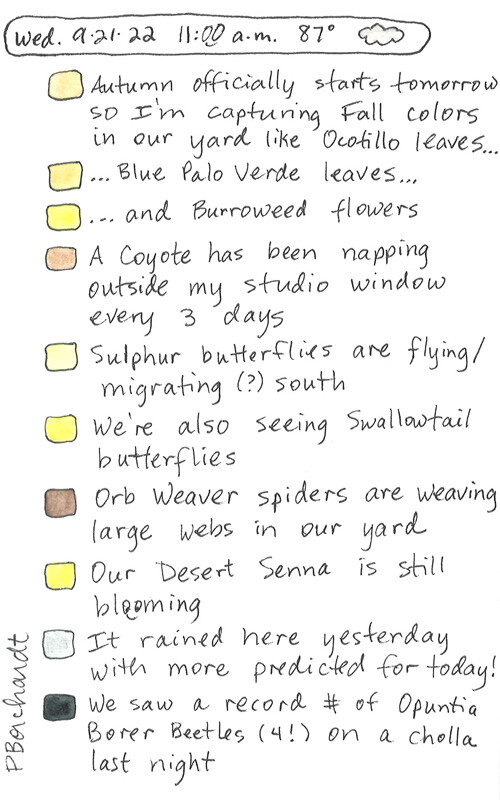 Wed. 9·21·22 11:00 a.m. 87°
Autumn officially starts tomorrow
so I'm capturing Fall colors
in our yard like Ocotillo leaves...
...Blue Palo Verde leaves...
...and Burroweed flowers
A Coyote has been napping
outside my studio window
every 3 days
Sulphur butterflies are flying/
migrating (?) south
We're also seeing Swallowtail
butterflies
Orb Weaver spiders are weaving
large webs in our yard
Our Desert Senna is still
blooming
It rained here yesterday
with more predicted for today!
We saw a record # of Opuntia
Borer Beetles (4!) on a cholla
last night
PBorchardt